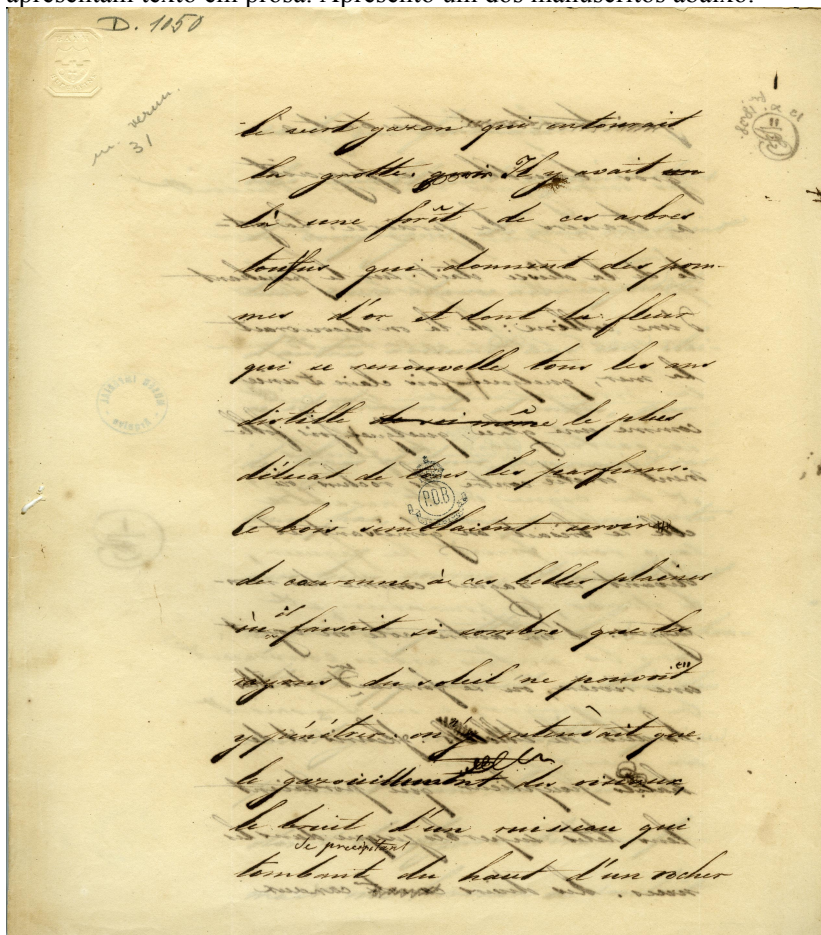 apresentam texto em prosa. Apresento um dos manuscritos abaixo:
D. 1050
verum.
31
le vert gazon qui entourait
la grotte. Il y avait un
là une forêt de ces arbres
touffus qui donnent des pom-
mes d'or et dont la fleur
qui se renouvelle tous les ans
distille de soi même le plus
délicat de tous les parfums.
Ce bois semblaient servir
de couronne à ces belles plaines
où il faisait si sombre que les
rayons du soleil ne pouvoit
y pénétrer. on y entendait que
le gazouillement des oiseaux,
le bruit d'un ruisseau qui
se précipitant
tombant du haut d'un rocher
P.D.B